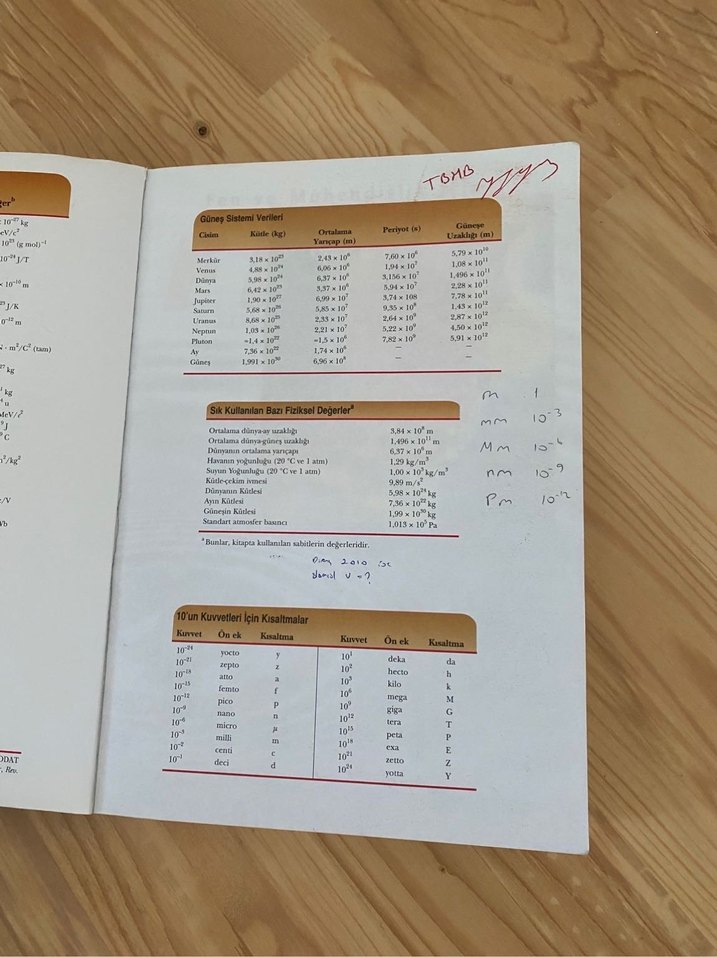 ğer
10⁻²⁷ kg
eV/c²
10²³ (g mol)⁻¹
10⁻²⁴ J/T
× 10⁻¹⁶ m
²³ J/K
0⁻¹² m
N · m²/C² (tam)
²⁷ kg
kg
u
MeV/c²
J
C
m²/kg²
c/V
Wb
ODAT
Rev.
TBMB
Güneş Sistemi Verileri
Cisim Kütle (kg) Ortalama Yarıçap (m) Periyot (s) Güneşe Uzaklığı (m)
Merkür 3,18 × 10²³ 2,43 × 10⁶ 7,60 × 10⁶ 5,79 × 10¹⁰
Venus 4,88 × 10²⁴ 6,06 × 10⁶ 1,94 × 10⁷ 1,08 × 10¹¹
Dünya 5,98 × 10²⁴ 6,37 × 10⁶ 3,156 × 10⁷ 1,496 × 10¹¹
Mars 6,42 × 10²³ 3,37 × 10⁶ 5,94 × 10⁷ 2,28 × 10¹¹
Jupiter 1,90 × 10²⁷ 6,99 × 10⁷ 3,74 × 108 7,78 × 10¹¹
Saturn 5,68 × 10²⁶ 5,85 × 10⁷ 9,35 × 10⁸ 1,43 × 10¹²
Uranus 8,68 × 10²⁵ 2,33 × 10⁷ 2,64 × 10⁹ 2,87 × 10¹²
Neptun 1,03 × 10²⁶ 2,21 × 10⁷ 5,22 × 10⁹ 4,50 × 10¹²
Pluton ≈1,4 × 10²² ≈1,5 × 10⁶ 7,82 × 10⁹ 5,91 × 10¹²
Ay 7,36 × 10²² 1,74 × 10⁶ — —
Güneş 1,991 × 10³⁰ 6,96 × 10⁸ — —
m 1
mm 10⁻³
Mm 10⁻⁶
nm 10⁻⁹
Pm 10⁻¹²
Sık Kullanılan Bazı Fiziksel Değerlerª
Ortalama dünya-ay uzaklığı 3,84 × 10⁸ m
Ortalama dünya-güneş uzaklığı 1,496 × 10¹¹ m
Dünyanın ortalama yarıçapı 6,37 × 10⁶ m
Havanın yoğunluğu (20 °C ve 1 atm) 1,29 kg/m³
Suyun Yoğunluğu (20 °C ve 1 atm) 1,00 × 10³ kg/m³
Kütle-çekim ivmesi 9,89 m/s²
Dünyanın Kütlesi 5,98 × 10²⁴ kg
Ayın Kütlesi 7,36 × 10²² kg
Güneşin Kütlesi 1,99 × 10³⁰ kg
Standart atmosfer basıncı 1,013 × 10⁵ Pa
ª Bunlar, kitapta kullanılan sabitlerin değerleridir.
2010
v = ?
10'un Kuvvetleri İçin Kısaltmalar
Kuvvet Ön ek Kısaltma Kuvvet Ön ek Kısaltma
10⁻²⁴ yocto y 10¹ deka da
10⁻²¹ zepto z 10² hecto h
10⁻¹⁸ atto a 10³ kilo k
10⁻¹⁵ femto f 10⁶ mega M
10⁻¹² pico p 10⁹ giga G
10⁻⁹ nano n 10¹² tera T
10⁻⁶ micro μ 10¹⁵ peta P
10⁻³ milli m 10¹⁸ exa E
10⁻² centi c 10²¹ zetto Z
10⁻¹ deci d 10²⁴ yotta Y